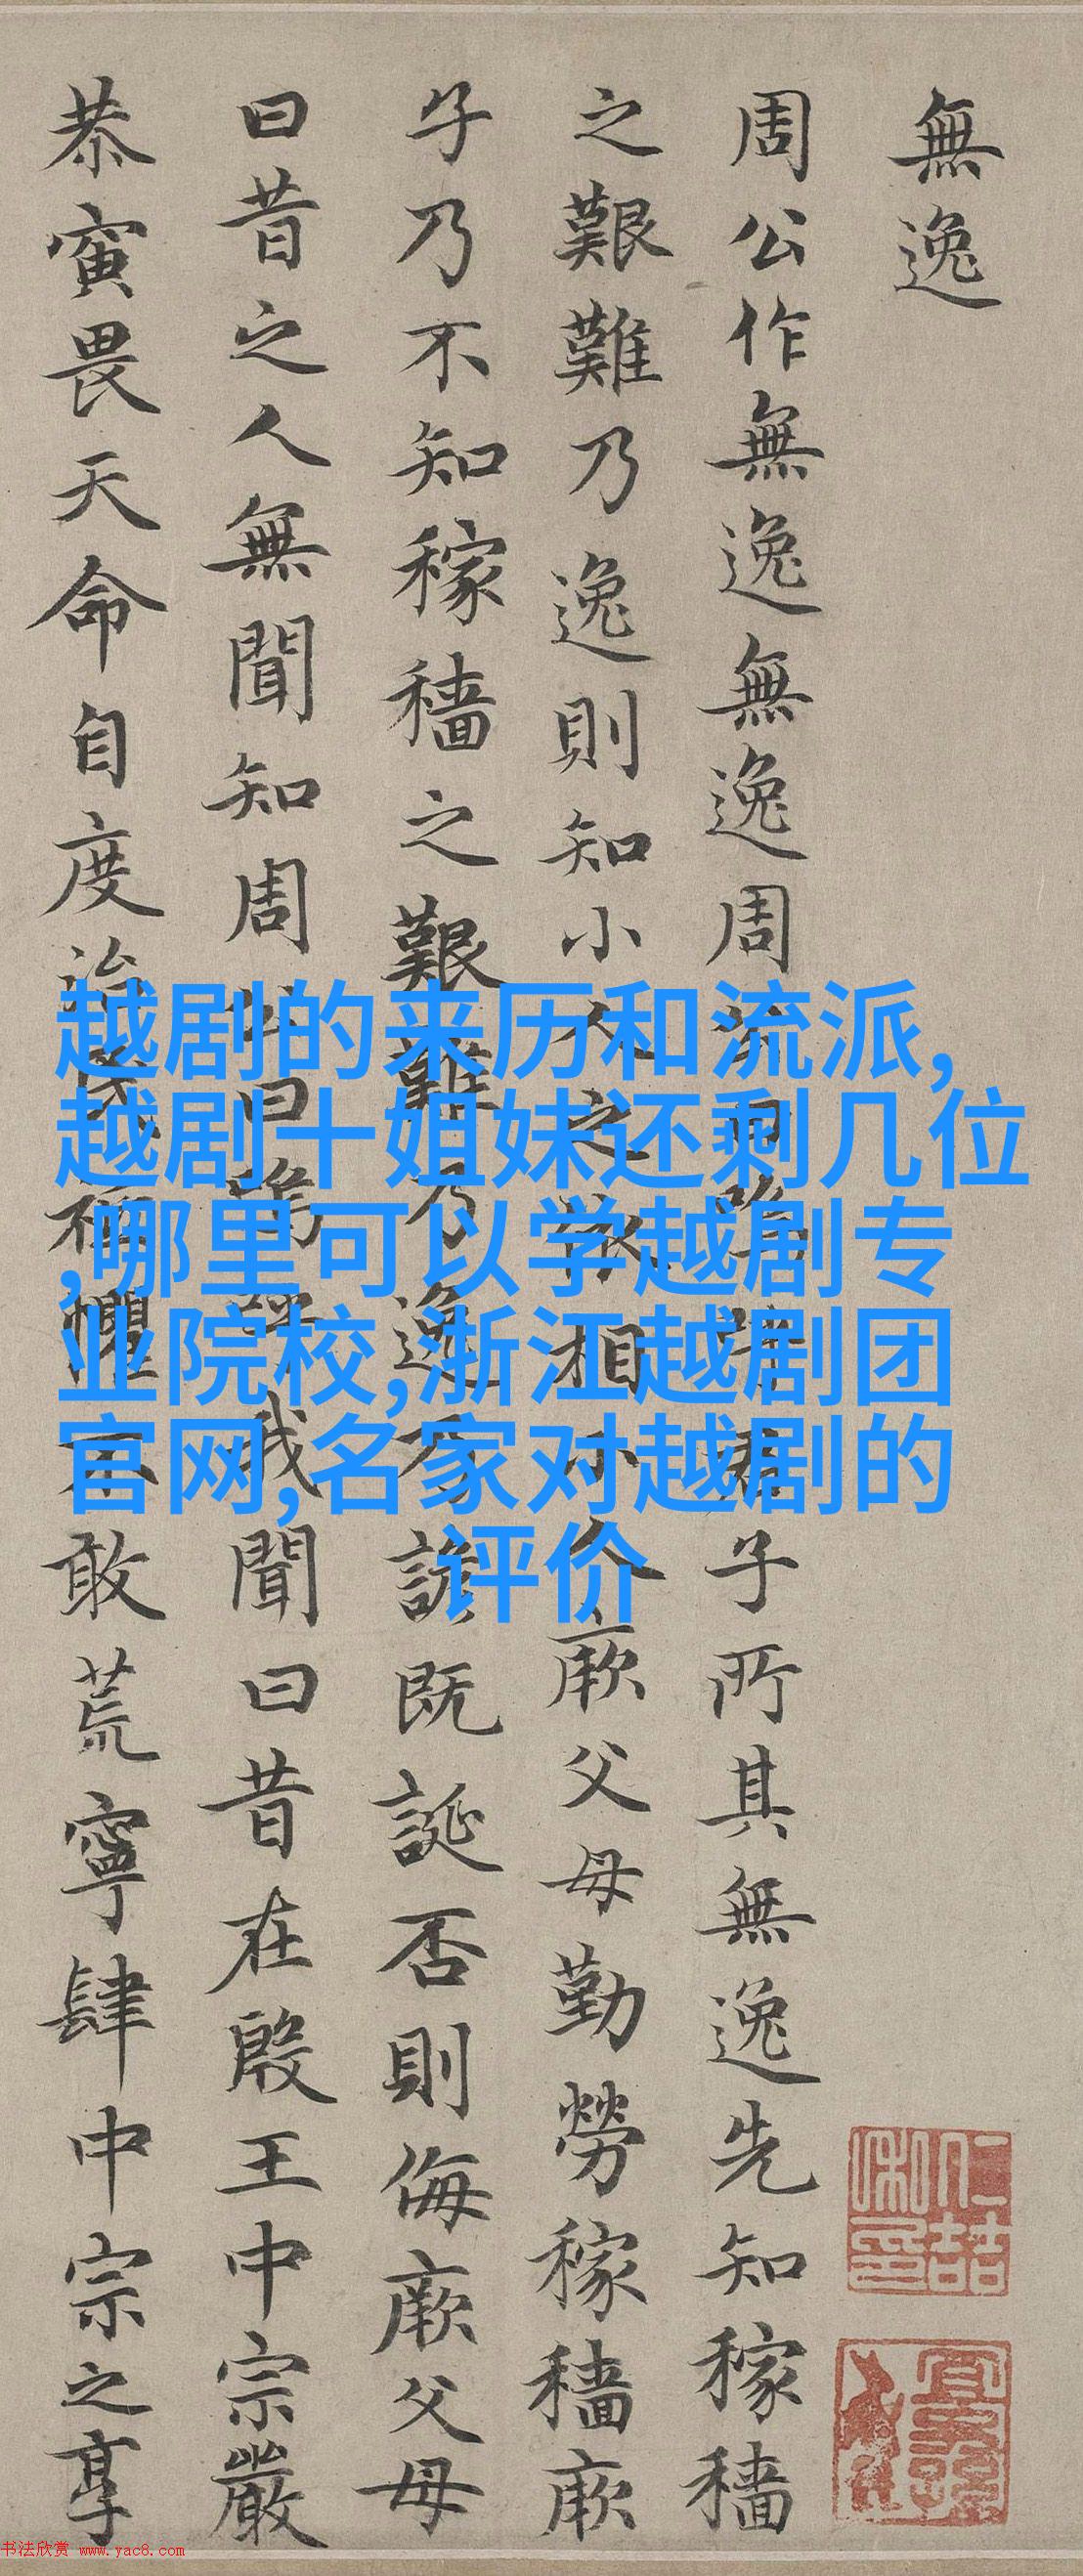 無逸
周公作無逸無逸周公曰嗚呼君子所其無逸先知稼穡
之艱難乃逸則知小人之依相小人厥父母勤勞稼穡厥
子乃不知稼穡之艱難乃逸乃諺既誕否則侮厥父母
曰昔之人無聞知周公曰嗚呼我聞曰昔在殷王中宗嚴
恭寅畏天命自度治民祗懼不敢荒寧肆中宗之享
越剧的来历和流派,
越剧十姐妹还剩几位
,哪里可以学越剧专
业院校,浙江越剧团
官网,名家对越剧的
评价
书法欣赏 www.yac8.com